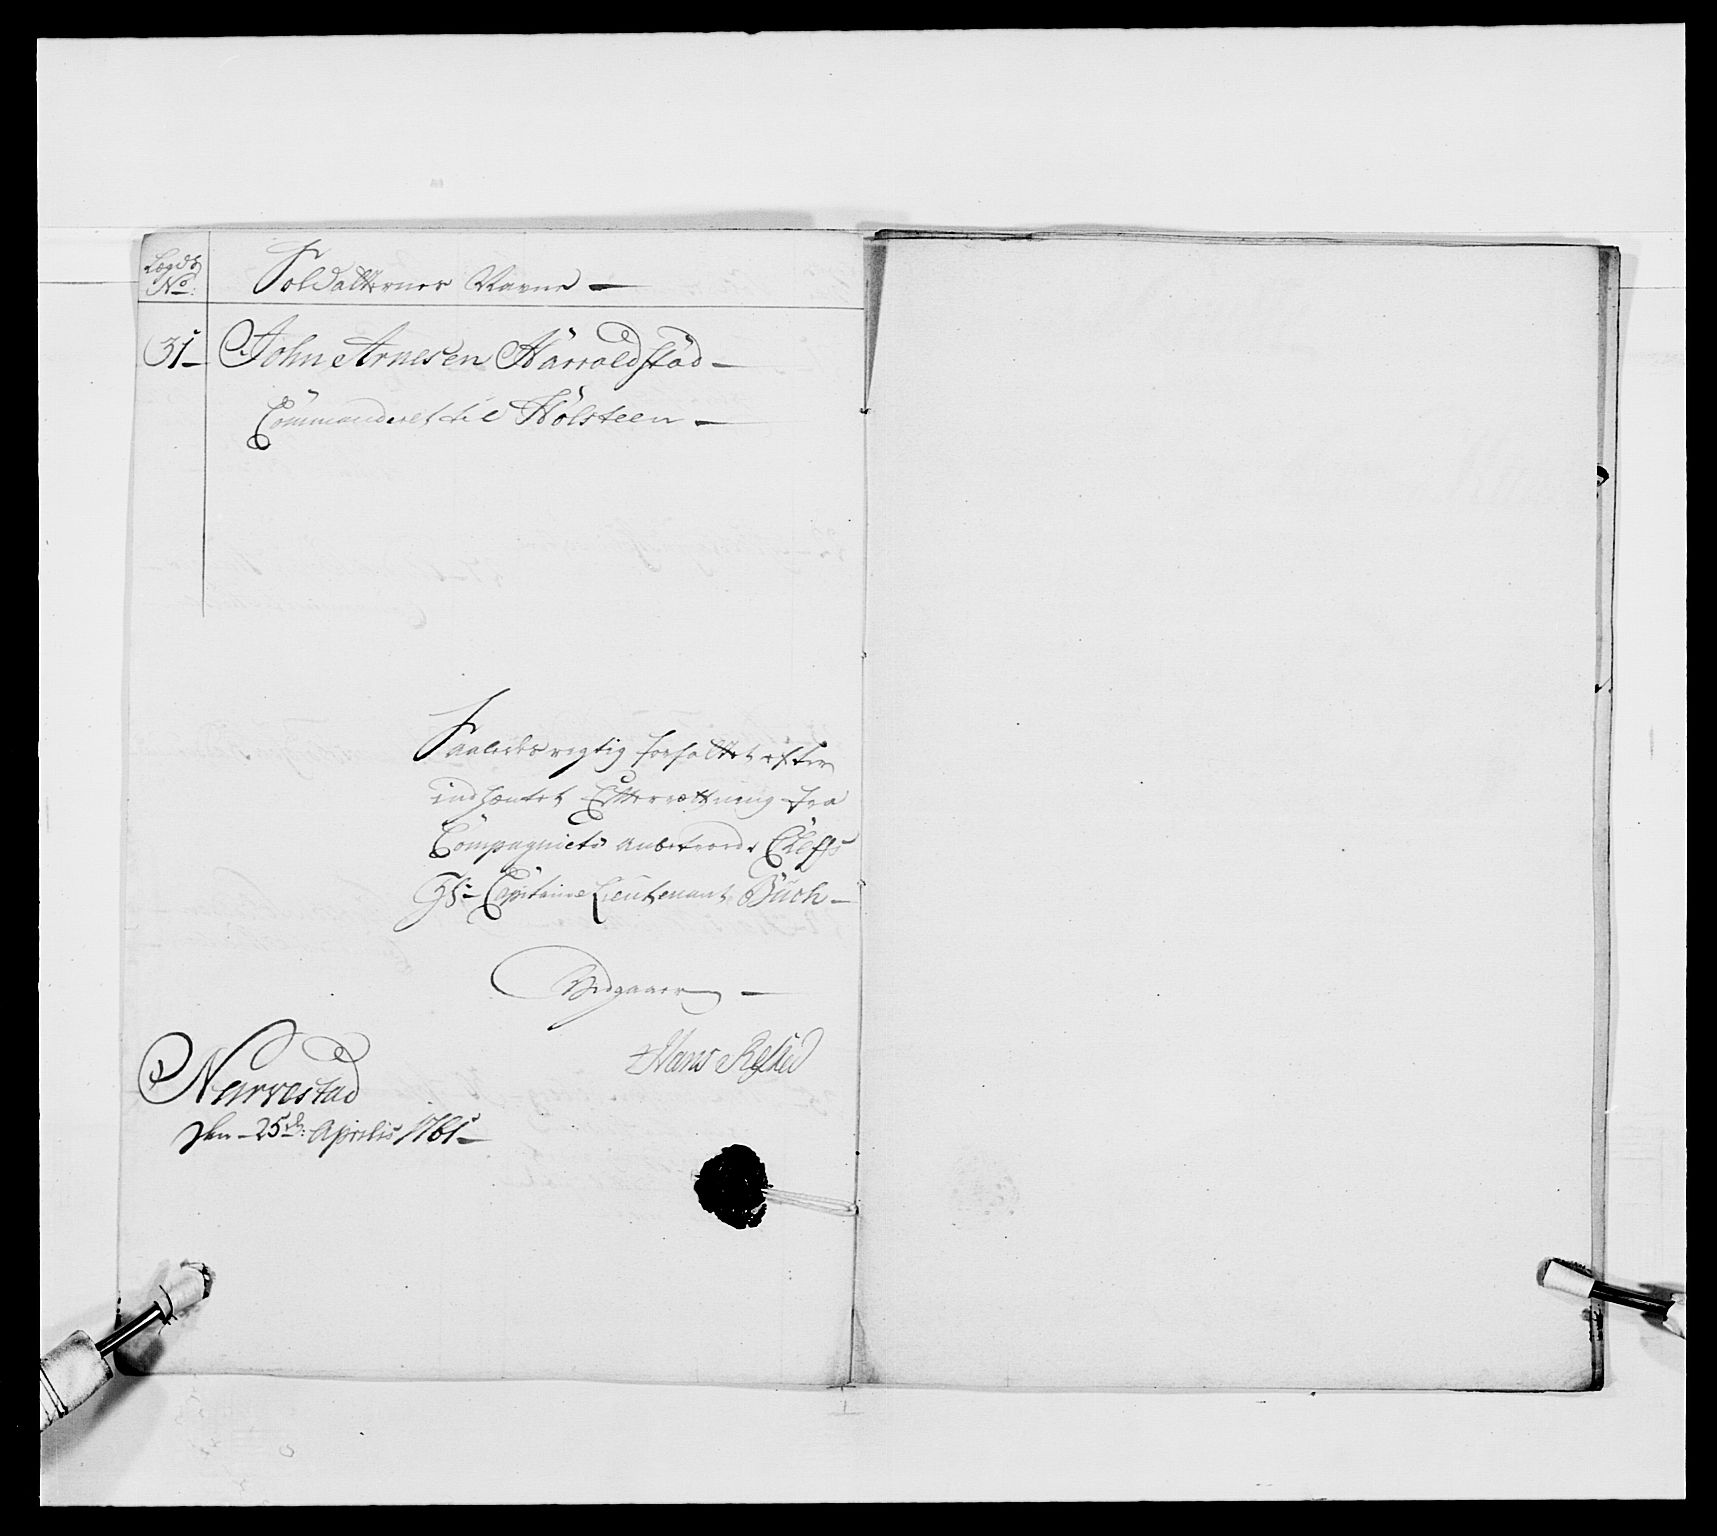 Lægds
No:
Soldatternes Navne —
31 — John Arnesen Harroldstad —
Commanderet til Holsteen —
Saaledes rigtig forfattet efter
indhentet Efterretning fra
Compagniets anbetroede Cheffs
Hr Capitaine Lieutenant Buch —
Hans
Narvestad
den 25de: Aprilis 1761 —